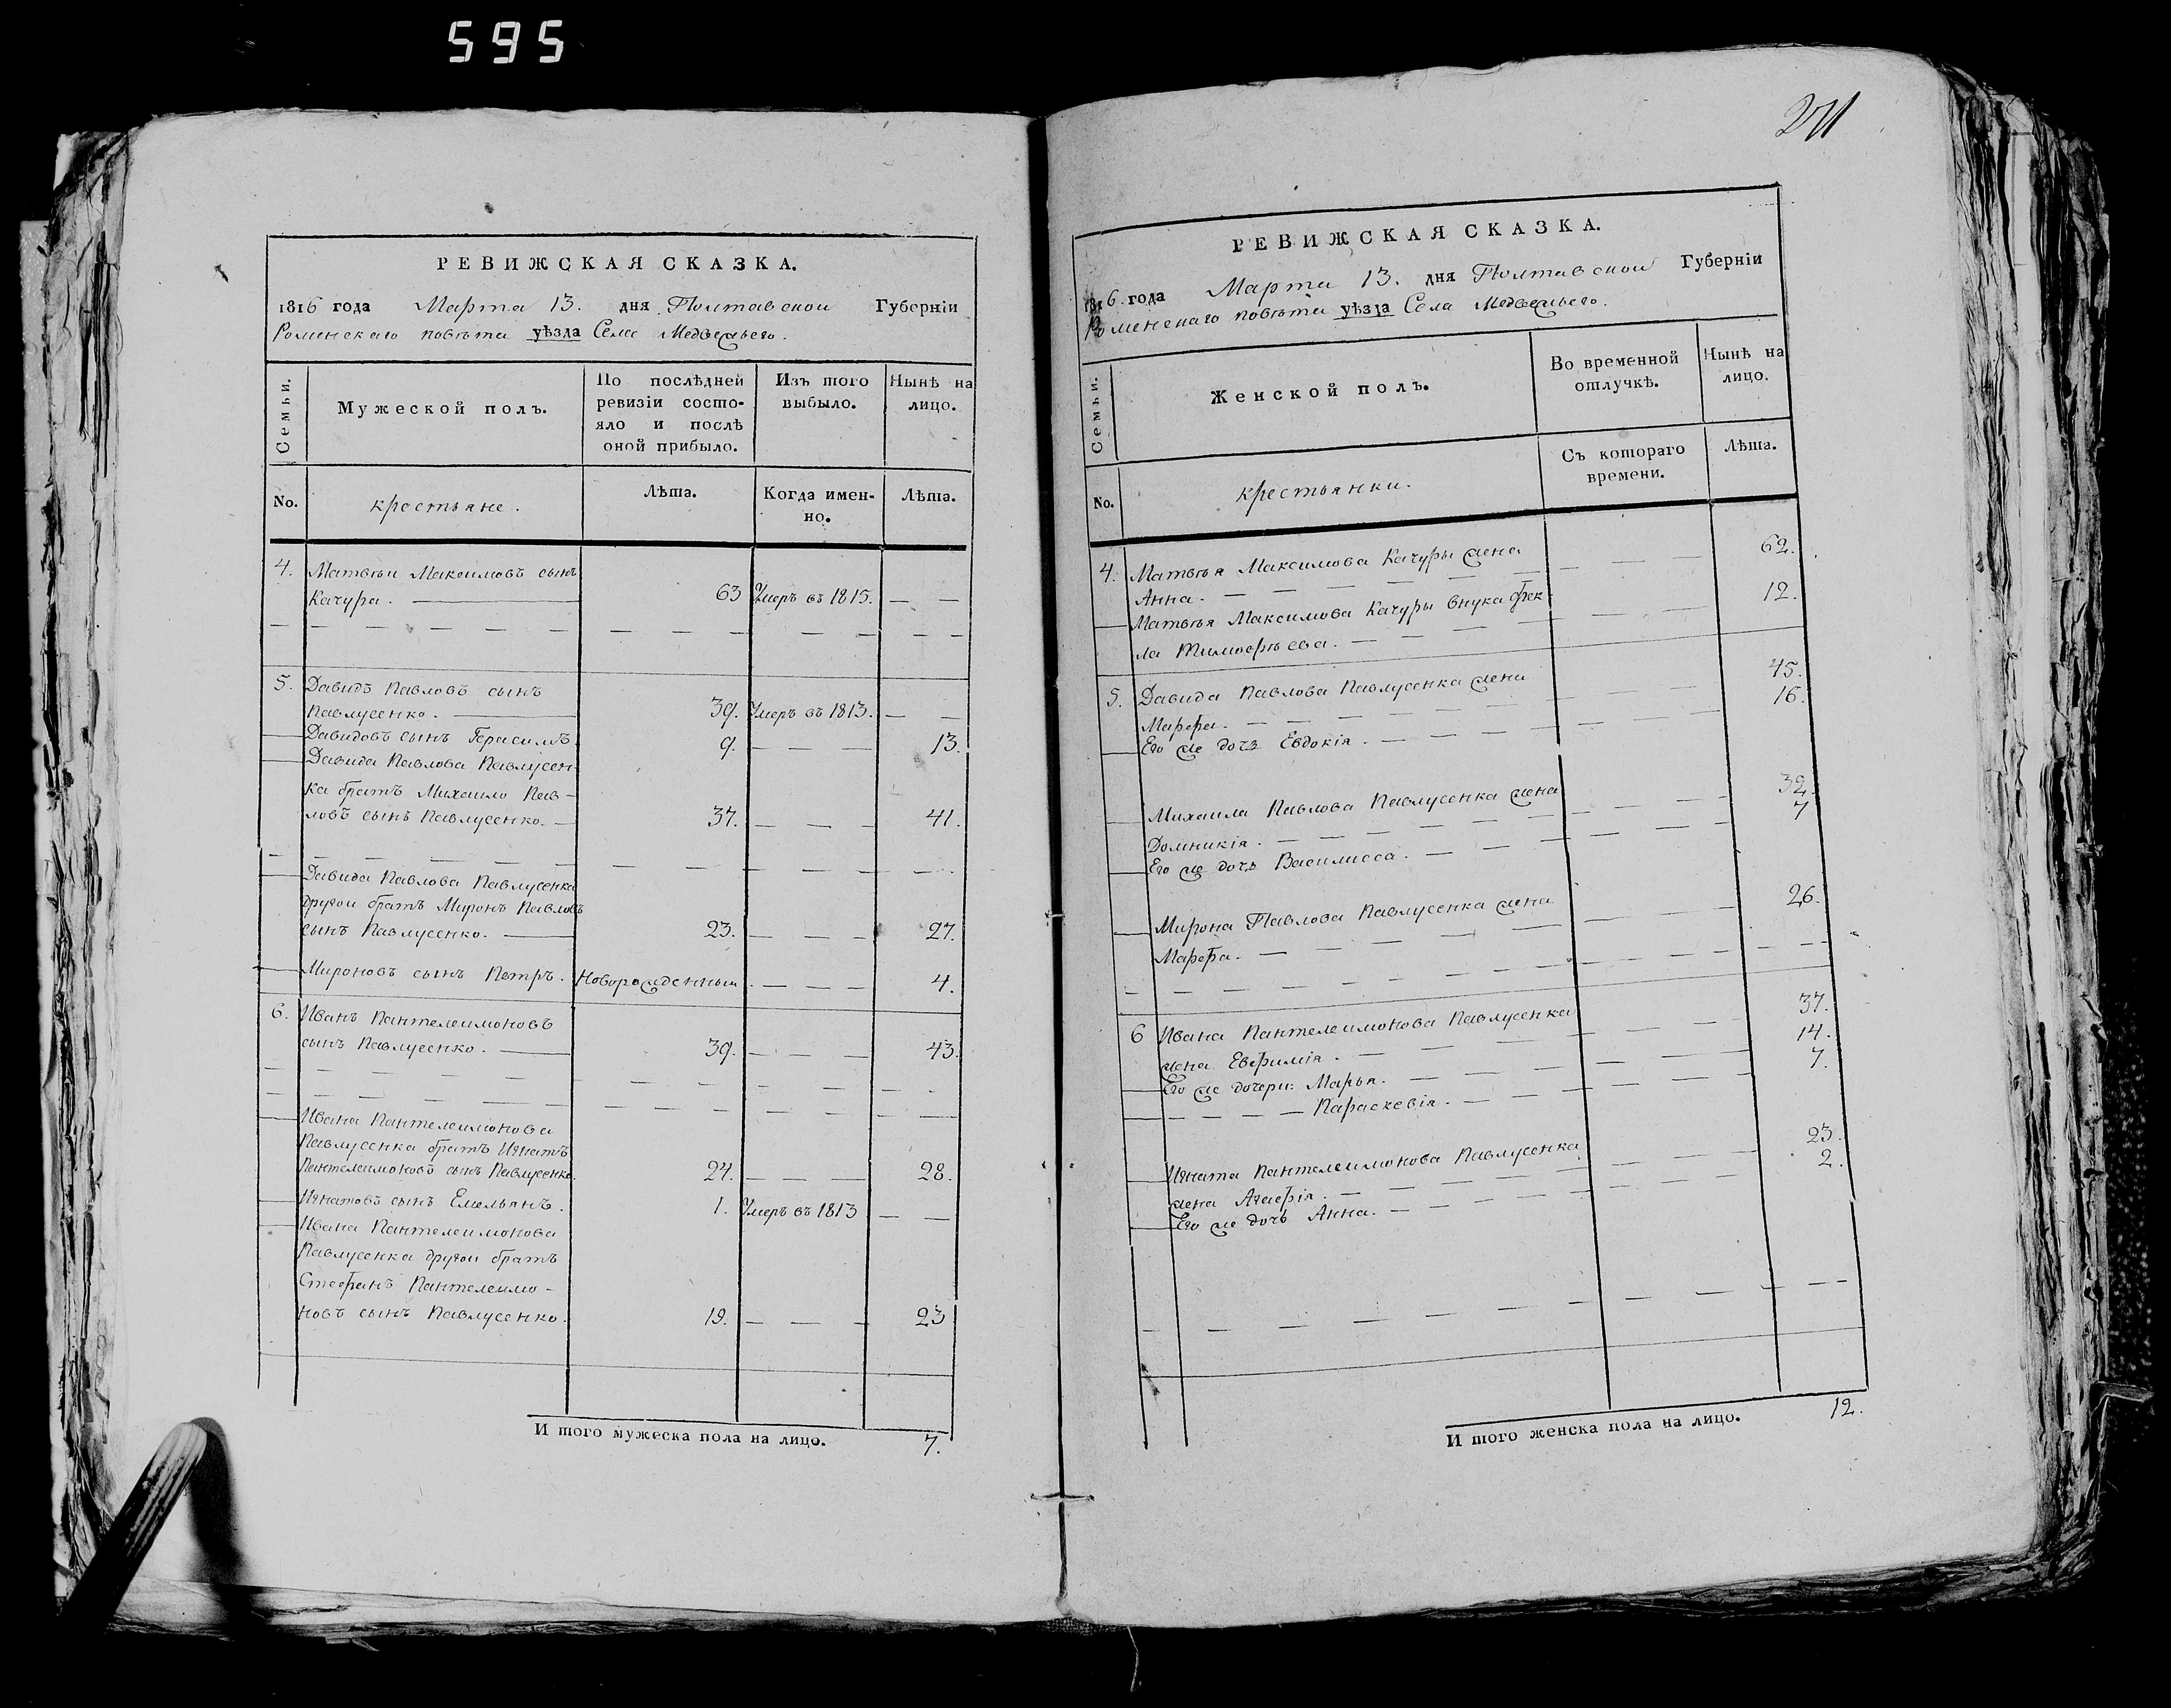 595
РЕВИЖСКАЯ СКАЗКА.
1816 года Марта 13. дня Полтавской Губерніи
Роменскаго повѣта уѣзда Села Медвежьего.
Семьи.
Мужеской полъ.
По послѣдней ревизіи состо-
яло и послѣ оной прибыло.
Изъ того выбыло.
Нынѣ на лицо.
No.
крестьяне.
Лѣта.
Когда имен-
но.
Лѣта.
4. Матвѣй Максимовъ сынъ
Качура. 63 Умеръ въ 1815. — —
5. Давидъ Павловъ сынъ
Павлусенко. 39. Умеръ въ 1813. — —
Давидовъ сынъ Герасимъ 9. — — — 13.
Давида Павлова Павлусен
ка братъ Михайло Пав-
ловъ сынъ Павлусенко. — 37. — — — 41.
Давида Павлова Павлусенка
другой братъ Миронъ Павловъ
сынъ Павлусенко. 23. — — — 27.
Мироновъ сынъ Петръ. Новорожденный — — — 4.
6. Иванъ Пантелеимоновъ
сынъ Павлусенко. 39. — — — 43.
Ивана Пантелеимонова
Павлусенка братъ Игнатъ
Пантелеимоновъ сынъ Павлусенко. 24. — — — 28.
Игнатовъ сынъ Емельянъ. 1. Умеръ въ 1813 — —
Ивана Пантелеимонова
Павлусенка другой братъ
Стефанъ Пантелеимо-
новъ сынъ Павлусенко. 19. — — — 23
И того мужеска пола на лицо. 7.
271
РЕВИЖСКАЯ СКАЗКА.
1816. года Марта 13. дня Полтавской Губерніи
Роменскаго повѣта уѣзда Села Медвежьего.
Семьи.
Женской полъ.
Во временной отлучкѣ.
Нынѣ на лицо.
No.
крестьянки.
Съ котораго времени.
Лѣта.
4. Матвѣя Максимова Качуры жена
Анна. — — — 62.
Матвѣя Максимова Качуры внука Фек-
ла Тимофѣева. — — — 12.
5. Давида Павлова Павлусенка жена
Марфа. — — — 45.
Его же дочь Евдокія. — — — 16.
Михаила Павлова Павлусенка жена
Домникія. — — — 32.
Его же дочь Василисса. — — — 7
Мирона Павлова Павлусенка жена
Марфа. — — — 26.
6 Ивана Пантелеимонова Павлусенка
жена Евфимія. — — — 37.
Его же дочери: Марья. — — — 14.
— — — — Параскевія. — — — 7.
Игната Пантелеимонова Павлусенка
жена Агафія. — — — 23.
Его же дочь Анна. — — — 2.
И того женска пола на лицо. 12.